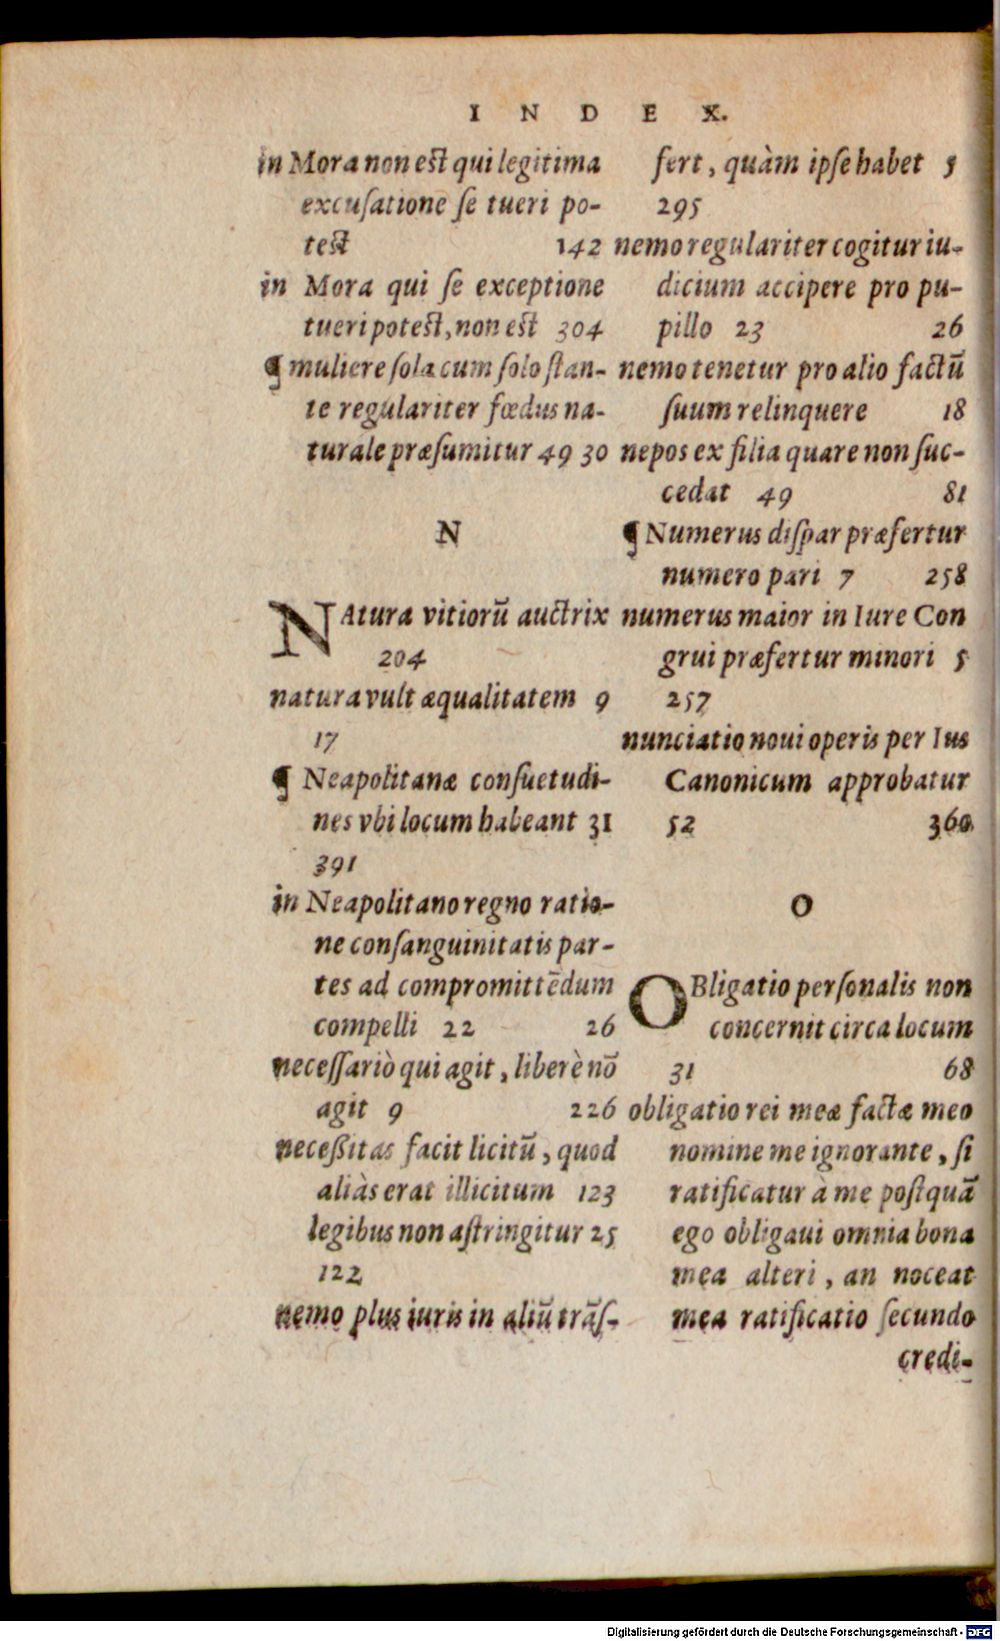 INDEX.
in Mora non est qui legitima
excuſatione ſe tueri po-
test 142
in Mora qui ſe exceptione
tueri potest, non est 304
¶ muliere ſola cum ſolo ſtan-
te regulariter fœdus na-
turale præſumitur 49 30
N
NAtura vitiorū auctrix
204
natura vult æqualitatem 9
17
¶ Neapolitanæ conſuetudi-
nes vbi locum habeant 31
391
in Neapolitano regno ratio-
ne conſanguinitatis par-
tes ad compromittēdum
compelli 22 26
neceſſariò qui agit, liberè nō
agit 9 226
neceßitas facit licitū, quod
aliàs erat illicitum 123
legibus non aſtringitur 25
122
nemo plus iuris in aliū trāſ-
fert, quàm ipſe habet 5
295
nemo regulariter cogitur iu-
dicium accipere pro pu-
pillo 23 26
nemo tenetur pro alio factū
ſuum relinquere 18
nepos ex filia quare non ſuc-
cedat 49 81
¶ Numerus diſpar præfertur
numero pari 7 258
numerus maior in Iure Con
grui præfertur minori 5
257
nunciatio noui operis per Ius
Canonicum approbatur
52 360
O
OBligatio perſonalis non
concernit circa locum
31 68
obligatio rei meæ factæ meo
nomine me ignorante, ſi
ratificatur à me poſtquā
ego obligaui omnia bona
mea alteri, an noceat
mea ratificatio ſecundo
credi-
Digitalisierung gefördert durch die Deutsche Forschungsgemeinschaft - DFG